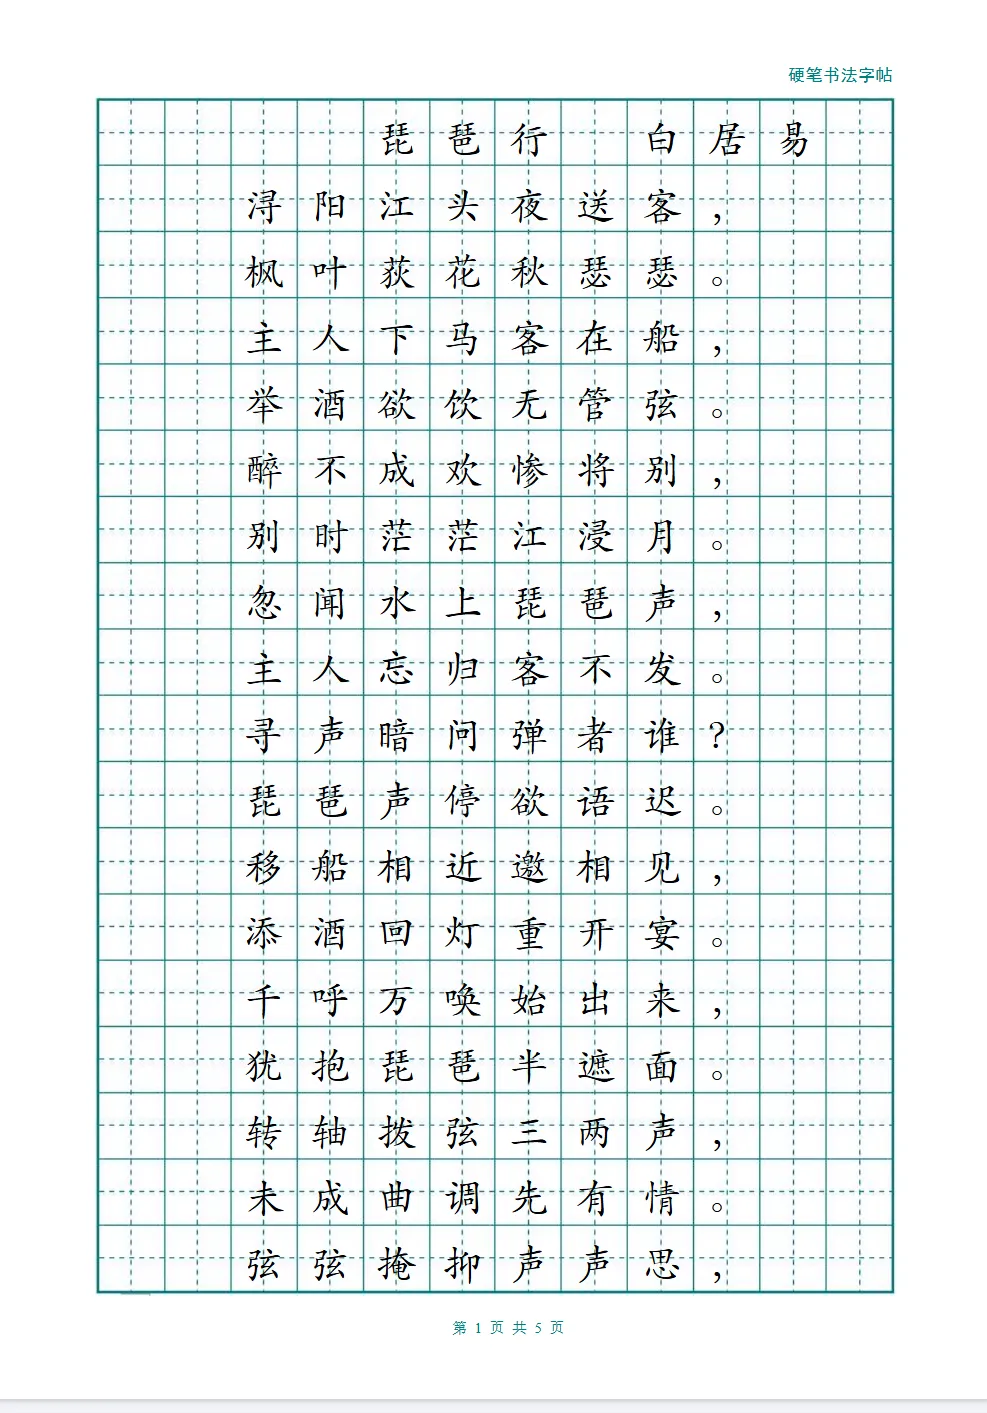 硬笔书法字帖
琵琶行 白居易
浔阳江头夜送客，
枫叶荻花秋瑟瑟。
主人下马客在船，
举酒欲饮无管弦。
醉不成欢惨将别，
别时茫茫江浸月。
忽闻水上琵琶声，
主人忘归客不发。
寻声暗问弹者谁？
琵琶声停欲语迟。
移船相近邀相见，
添酒回灯重开宴。
千呼万唤始出来，
犹抱琵琶半遮面。
转轴拨弦三两声，
未成曲调先有情。
弦弦掩抑声声思，
第 1 页 共 5 页